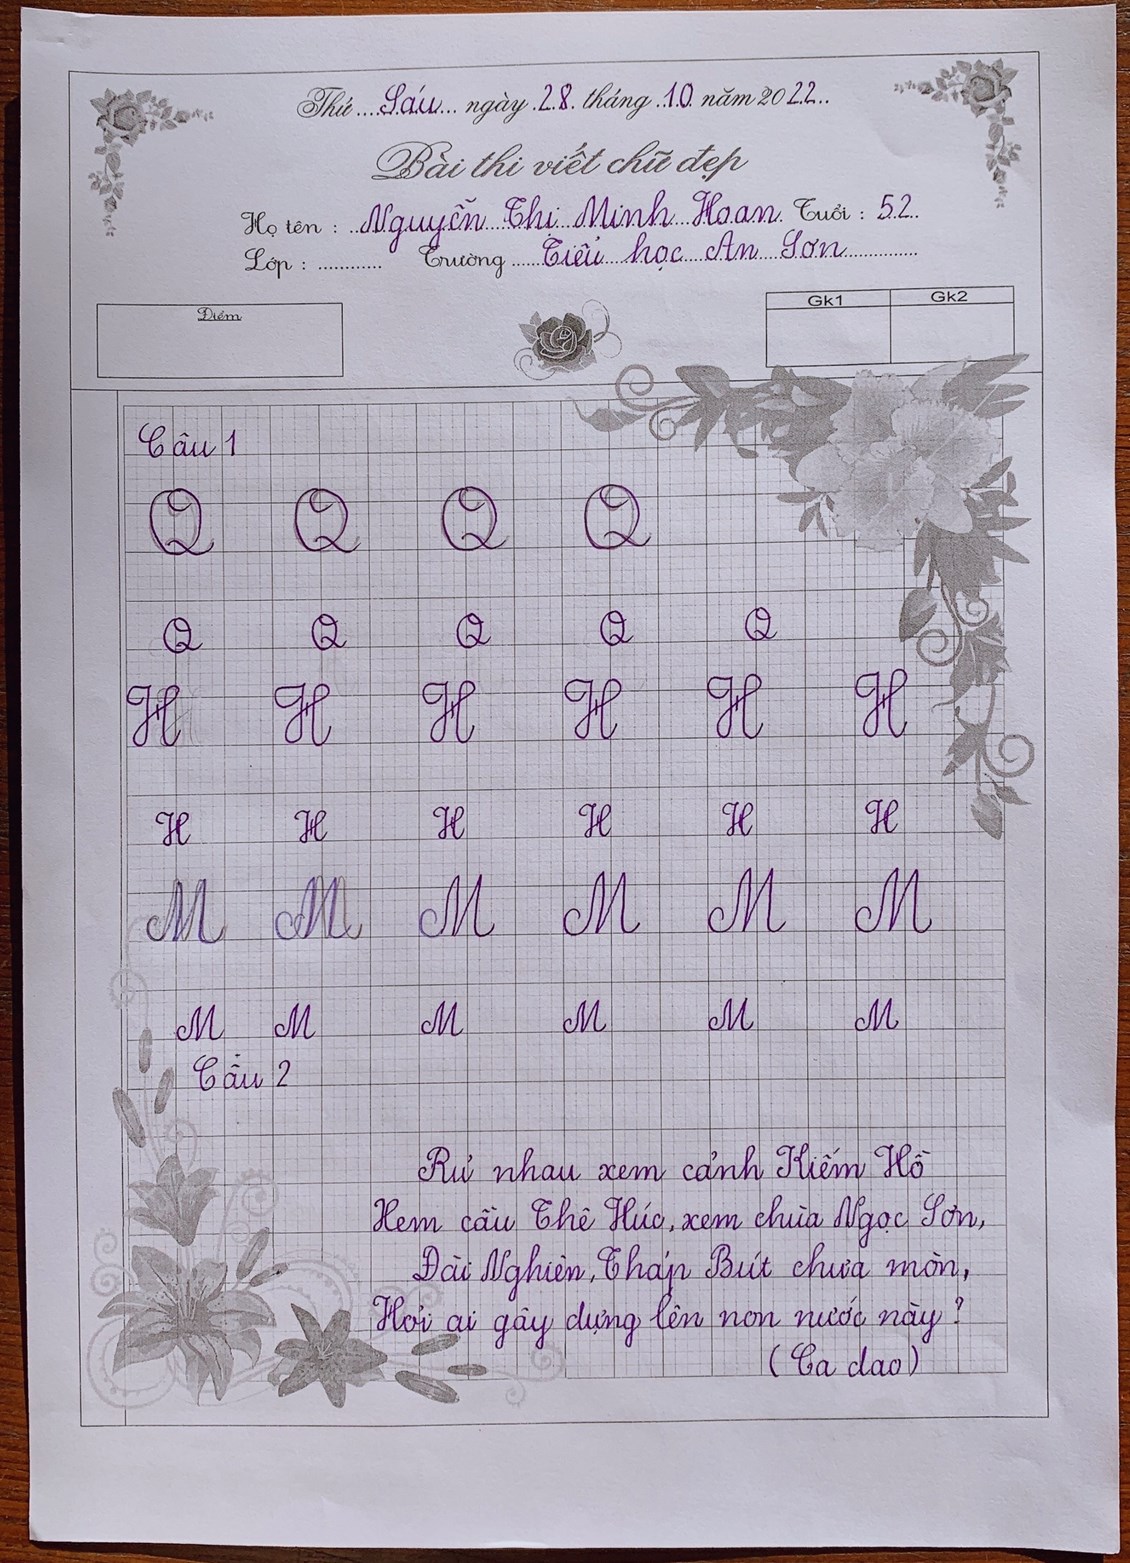 Thứ....Sáu... ngày .28. tháng .10. năm 2022..
Bài thi viết chữ đẹp
Họ tên : ..Nguyễn Thị Minh Hoan. Tuổi : 52..
Lớp : ............ Trường .....Tiểu học An Sơn...............
Điểm
Gk1 Gk2
Câu 1
Q Q Q Q
Q Q Q Q Q
H H H H H H
H H H H H H
M M M M M M
M M M M M M
Câu 2
Rủ nhau xem cảnh Kiếm Hồ
Xem cầu Thê Húc, xem chùa Ngọc Sơn,
Đài Nghiên, Tháp Bút chưa mòn,
Hỏi ai gây dựng lên non nước này ?
( Ca dao )